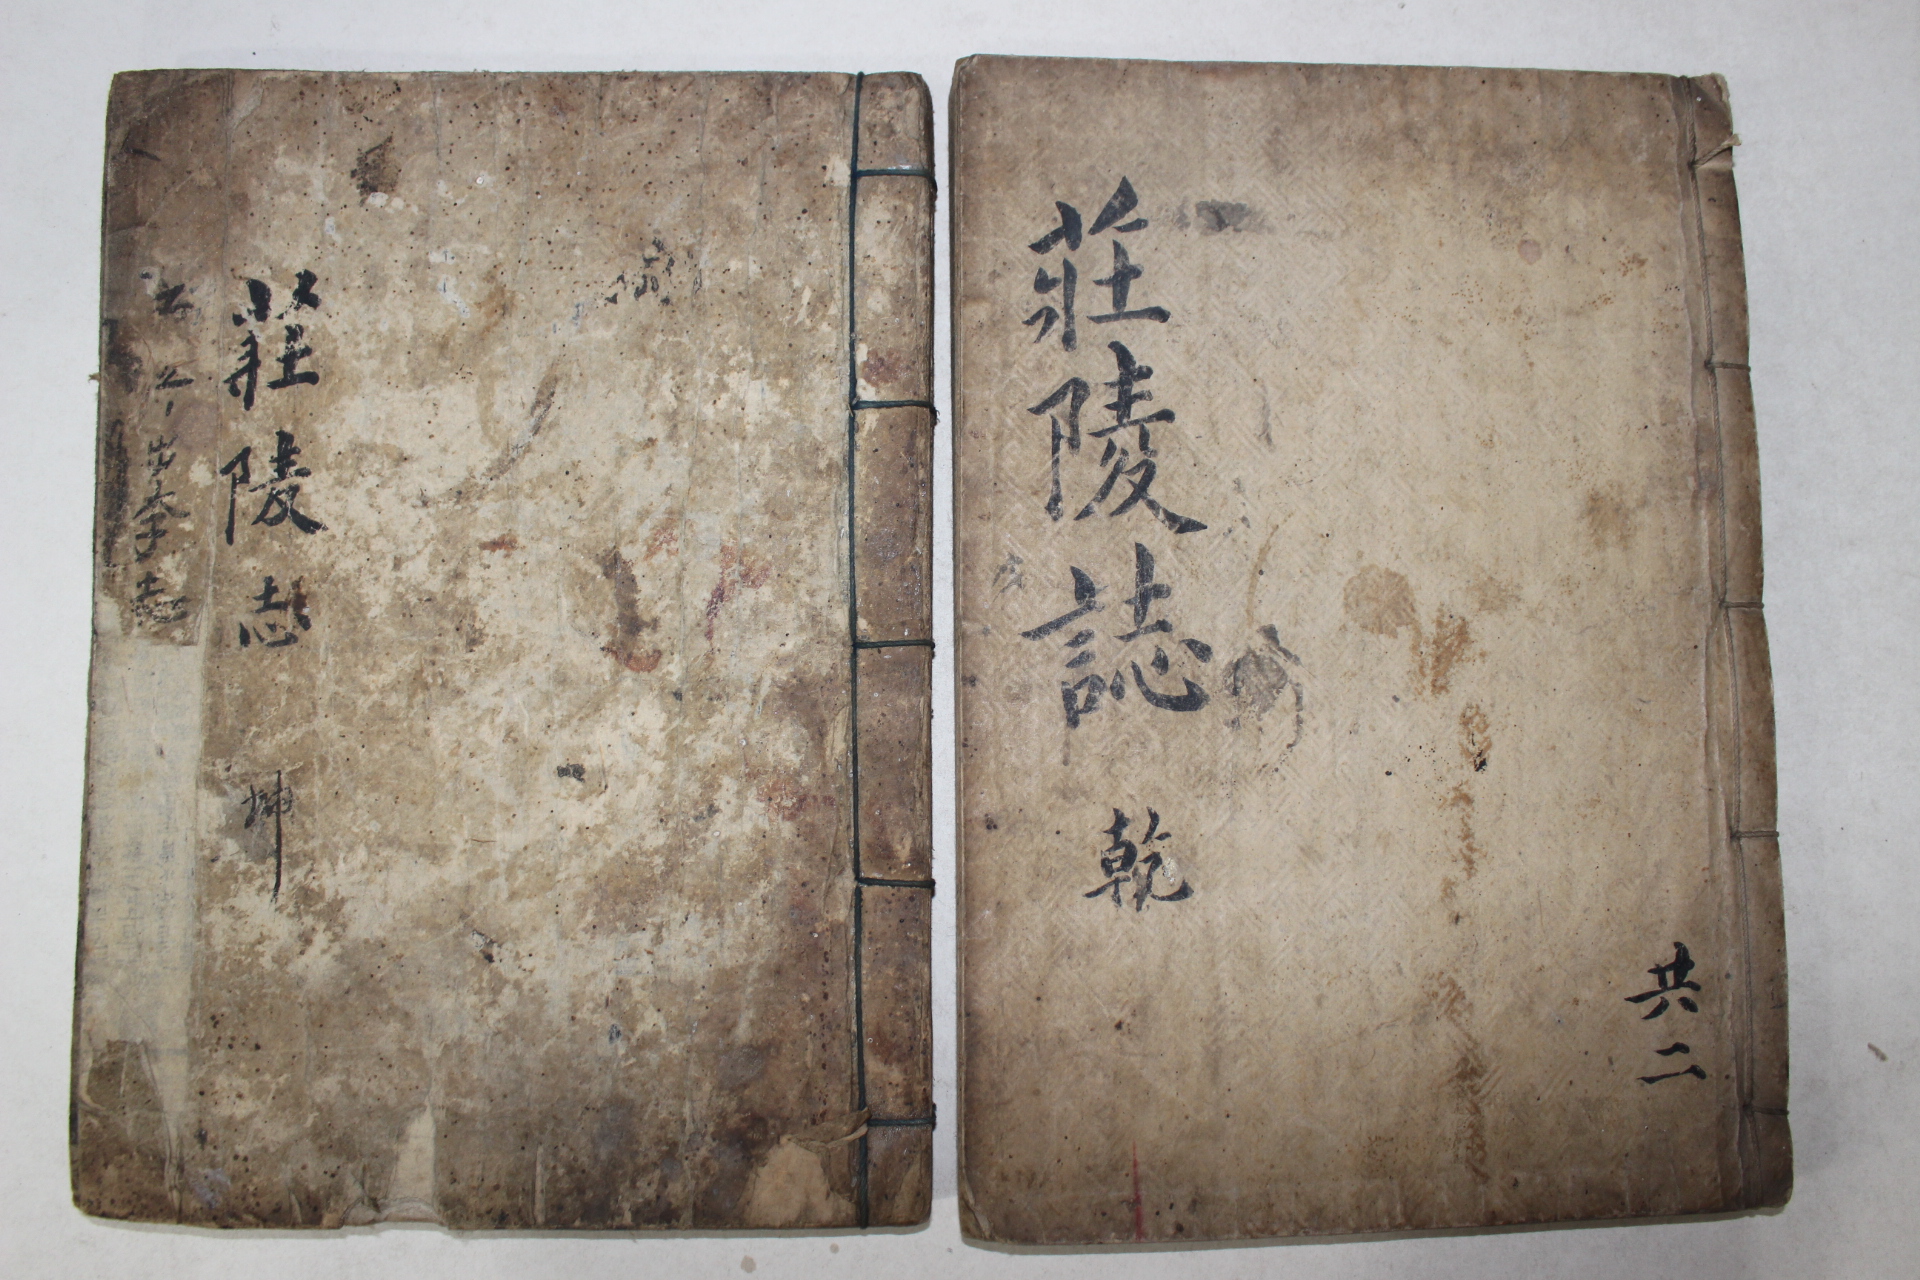 莊陵誌 乾
共二
莊陵志 坤